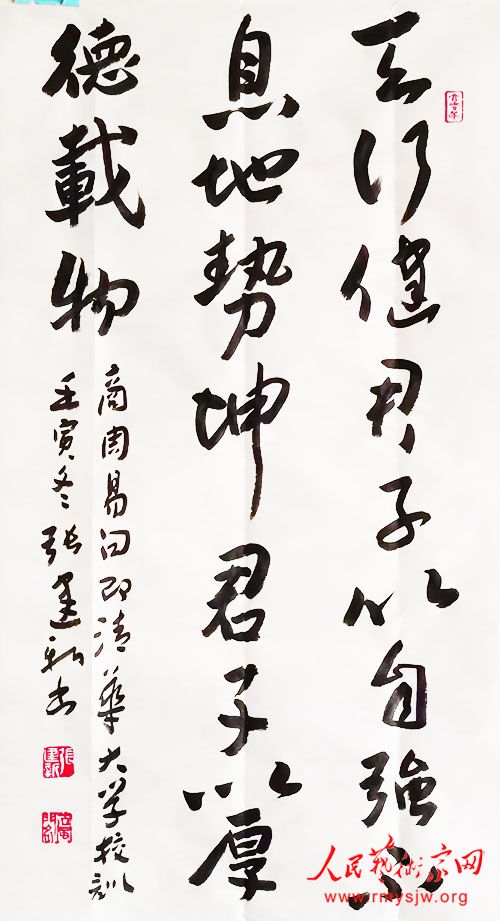 天行健君子以自強不
息地勢坤君子以厚
德載物
商周易句即清華大学校訓
壬寅冬张建新书
人民藝術家网
www.rmysjw.org